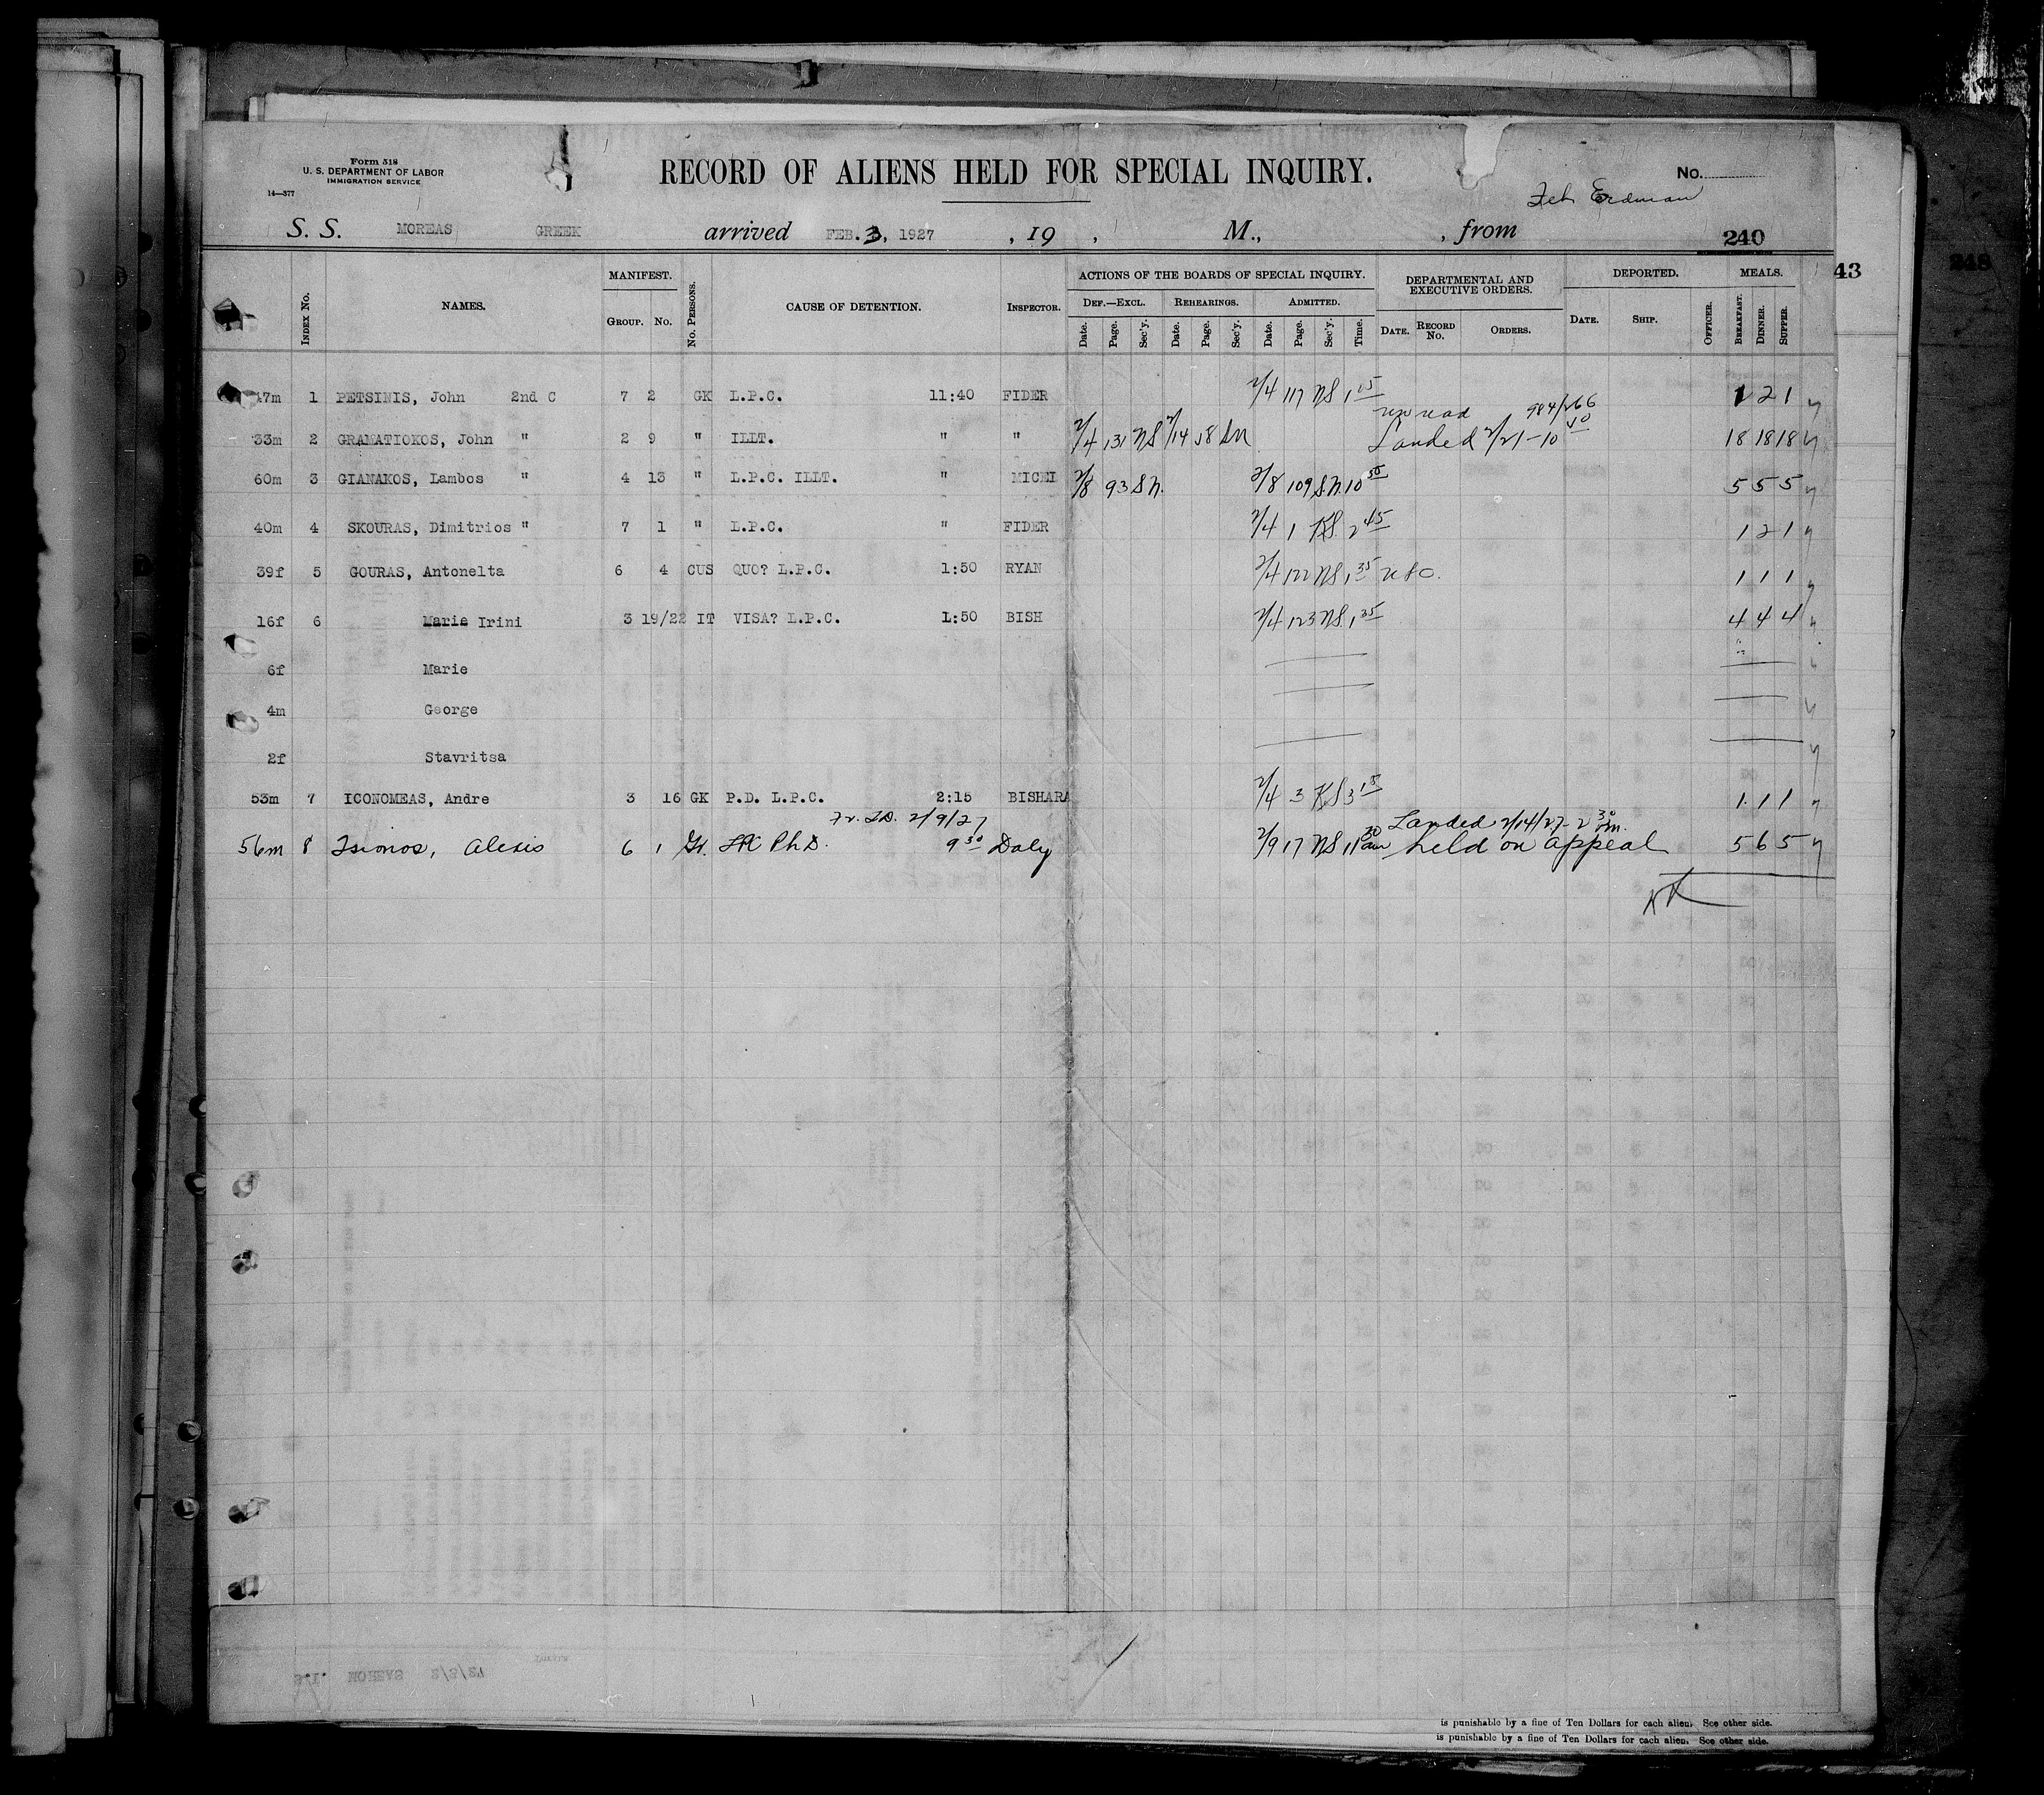 Form 518
U. S. DEPARTMENT OF LABOR
IMMIGRATION SERVICE
14—377
RECORD OF ALIENS HELD FOR SPECIAL INQUIRY.
No.
Erdman
S. S. MOREAS GREEK arrived FEB. 3, 1927 , 19 , M., , from 240
43
248
INDEX No. NAMES. MANIFEST. GROUP. No. No. PERSONS. CAUSE OF DETENTION. INSPECTOR. ACTIONS OF THE BOARDS OF SPECIAL INQUIRY. DEF.—EXCL. Date. Page. Sec'y. REHEARINGS. Date. Page. Sec'y. ADMITTED. Date. Page. Sec'y. Time. DEPARTMENTAL AND EXECUTIVE ORDERS. DATE. RECORD No. ORDERS. DEPORTED. DATE. SHIP. OFFICER. MEALS. BREAKFAST. DINNER. SUPPER.
47m 1 PETSINIS, John 2nd C 7 2 GK L.P.C. 11:40 FIDER 2/4 117 NS 1 05 1 2 1
984/266
33m 2 GRAMATIOKOS, John " 2 9 " ILLT. " " 2/4 131 NS 2/14 58 Landed 2/21-10 50 18 18 18
60m 3 GIANAKOS, Lambos " 4 13 " L.P.C. ILLT. " MICEI 2/8 93 SN. 2/8 109 SN. 10 50 5 5 5
40m 4 SKOURAS, Dimitrios " 7 1 " L.P.C. " FIDER 2/4 1 KS. 2 45 1 2 1
39f 5 GOURAS, Antonelta 6 4 CUS QUO? L.P.C. 1:50 RYAN 2/4 122 NS 1 35 1 1 1
16f 6 Marie Irini 3 19/22 IT VISA? L.P.C. 1:50 BISH 2/4 123 NS. 1 35 4 4 4
6f Marie
4m George
2f Stavritsa
53m 7 ICONOMEAS, Andre 3 16 GK P.D. L.P.C. 2:15 BISHARA 2/4 3 KS 3 15 1 1 1
2/9/27 Landed 2/14/27- 2 30 pm.
56m 8 Tsionos, Alexis 6 1 Gr. Ph.D. 9 30 Daly 2/9 17 NS held on appeal 5 6 5
S.I. MOREAS 2/3/27
is punishable by a fine of Ten Dollars for each alien. See other side.
is punishable by a fine of Ten Dollars for each alien. See other side.